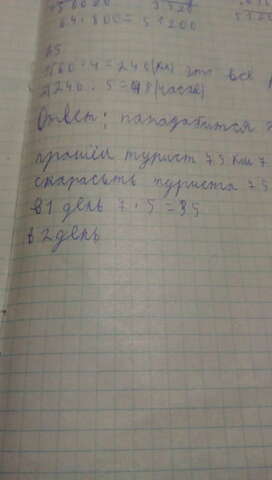 64 · 800 = 51200
1) 60 · 4 = 240 (км) это всё
2) 240 : 5 = 48 (часов)
Ответ: панадабится
прошёл турист 75 км 7
скарасьть туриста 75
в 1 день 7 · 5 = 35
в 2 день